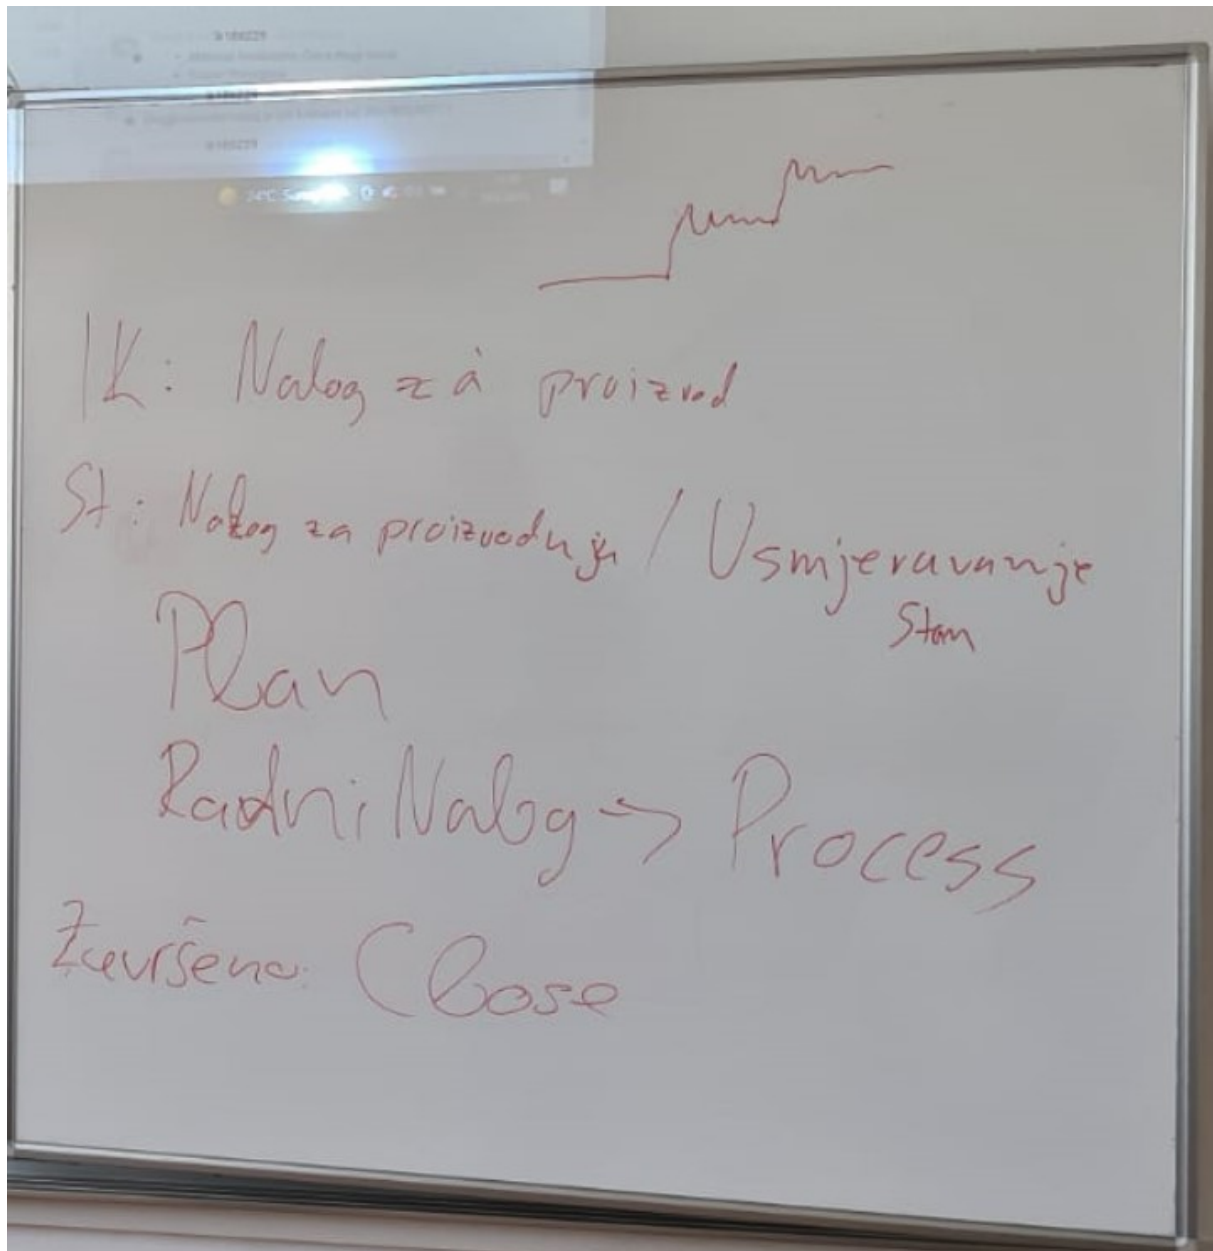 9188229
24°C
IK: Nalog za proizvod
St: Nalog za proizvodnju / Usmjeravanje
Stan
Plan
Radni Nalog -> Process
Završeno: Close